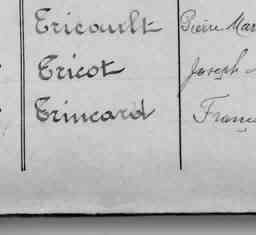 Tricault Pierre Mar
Tricot Joseph
Trincard Franç